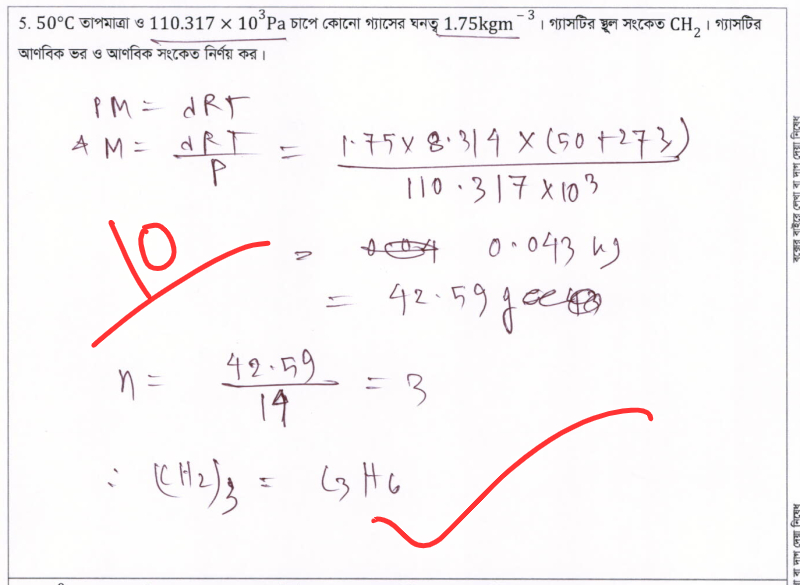 5. 50°C তাপমাত্রা ও 110.317 × 10³Pa চাপে কোনো গ্যাসের ঘনত্ব 1.75kgm⁻³। গ্যাসটির স্থূল সংকেত CH₂। গ্যাসটির
আণবিক ভর ও আণবিক সংকেত নির্ণয় কর।
PM = dRT
M = dRT/P = 1.75 × 8.314 × (50+273) / 110.317 × 10³
= 0.043 kg
= 42.59 g
10
n = 42.59/14 = 3
∴ (CH2)3 = C3H6
বক্সের বাইরে লেখা বা দাগ দেয়া নিষেধ
বা দাগ দেয়া নিষেধ